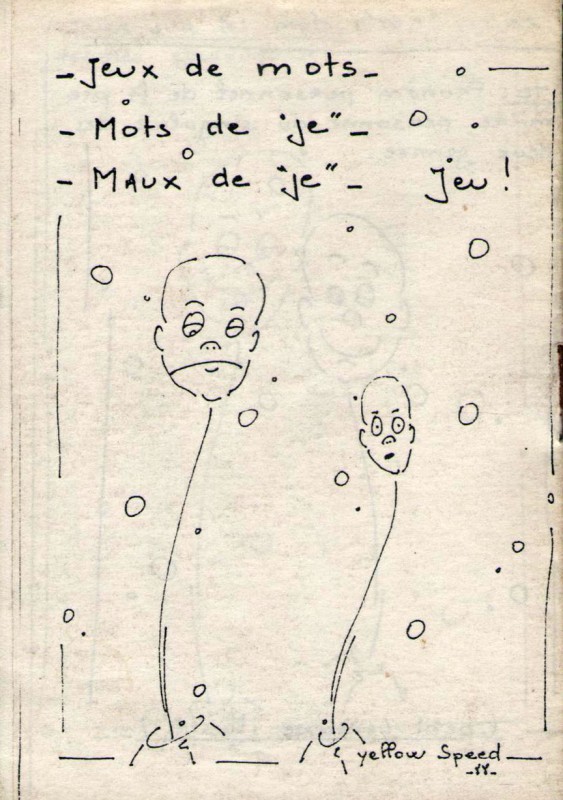 - Jeux de mots -
- Mots de "je" -
- Maux de "je" - Jeu !
yellow Speed